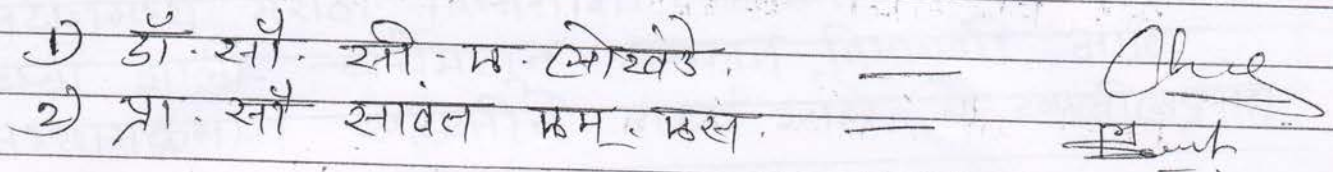 १) डॉ. सौ. सी. म. लोखंडे. —
२) प्रा. सौ सावंत एम. एस. —